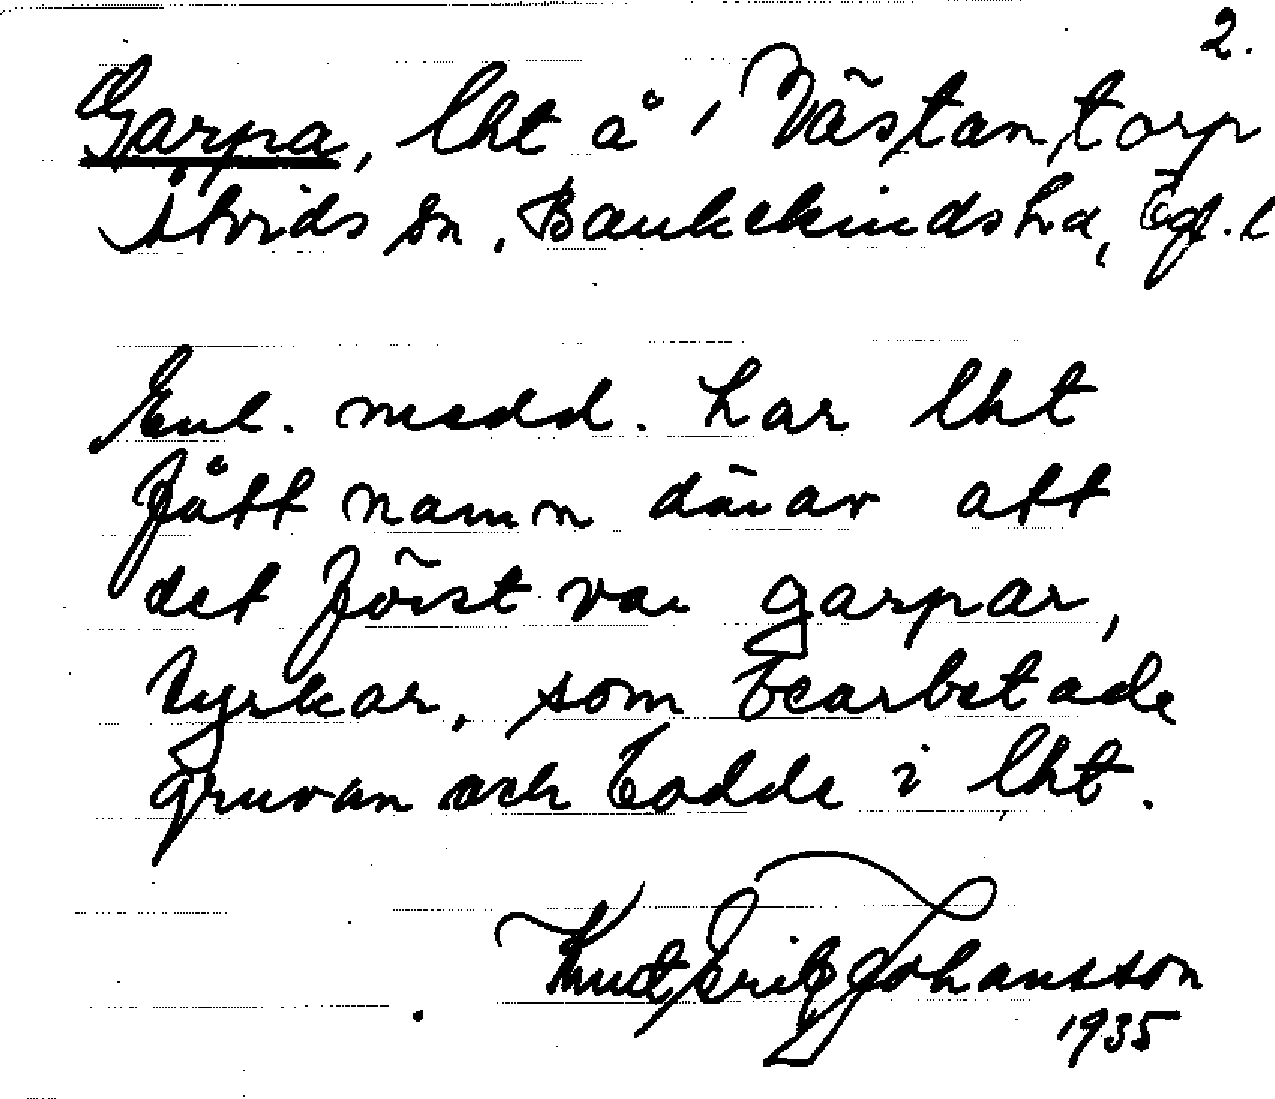 2.
Garpa, lht å Västantorp
Åtvids sn, Bankekinds hd, Ögl.l
Enl. medd. har lht
fått namn därav att
det först var garpar,
tyskar, som bearbetade
gruvan och bodde i lht.
Knut Erik Johansson
1935